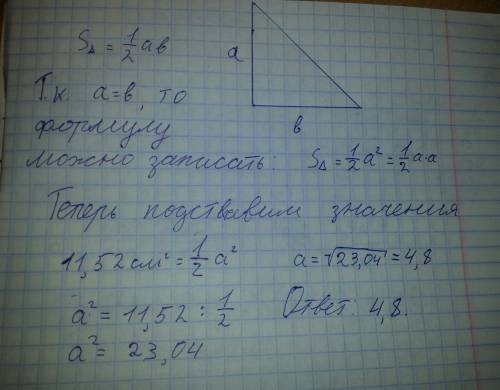 S△ = 1/2 ab
a
Т.к. a=b, то
формулу
b
можно записать: S△ = 1/2 a² = 1/2 a·a
Теперь подставим значения
11,52 см² = 1/2 a²
a = √23,04 = 4,8
a² = 11,52 : 1/2
Ответ: 4,8.
a² = 23,04